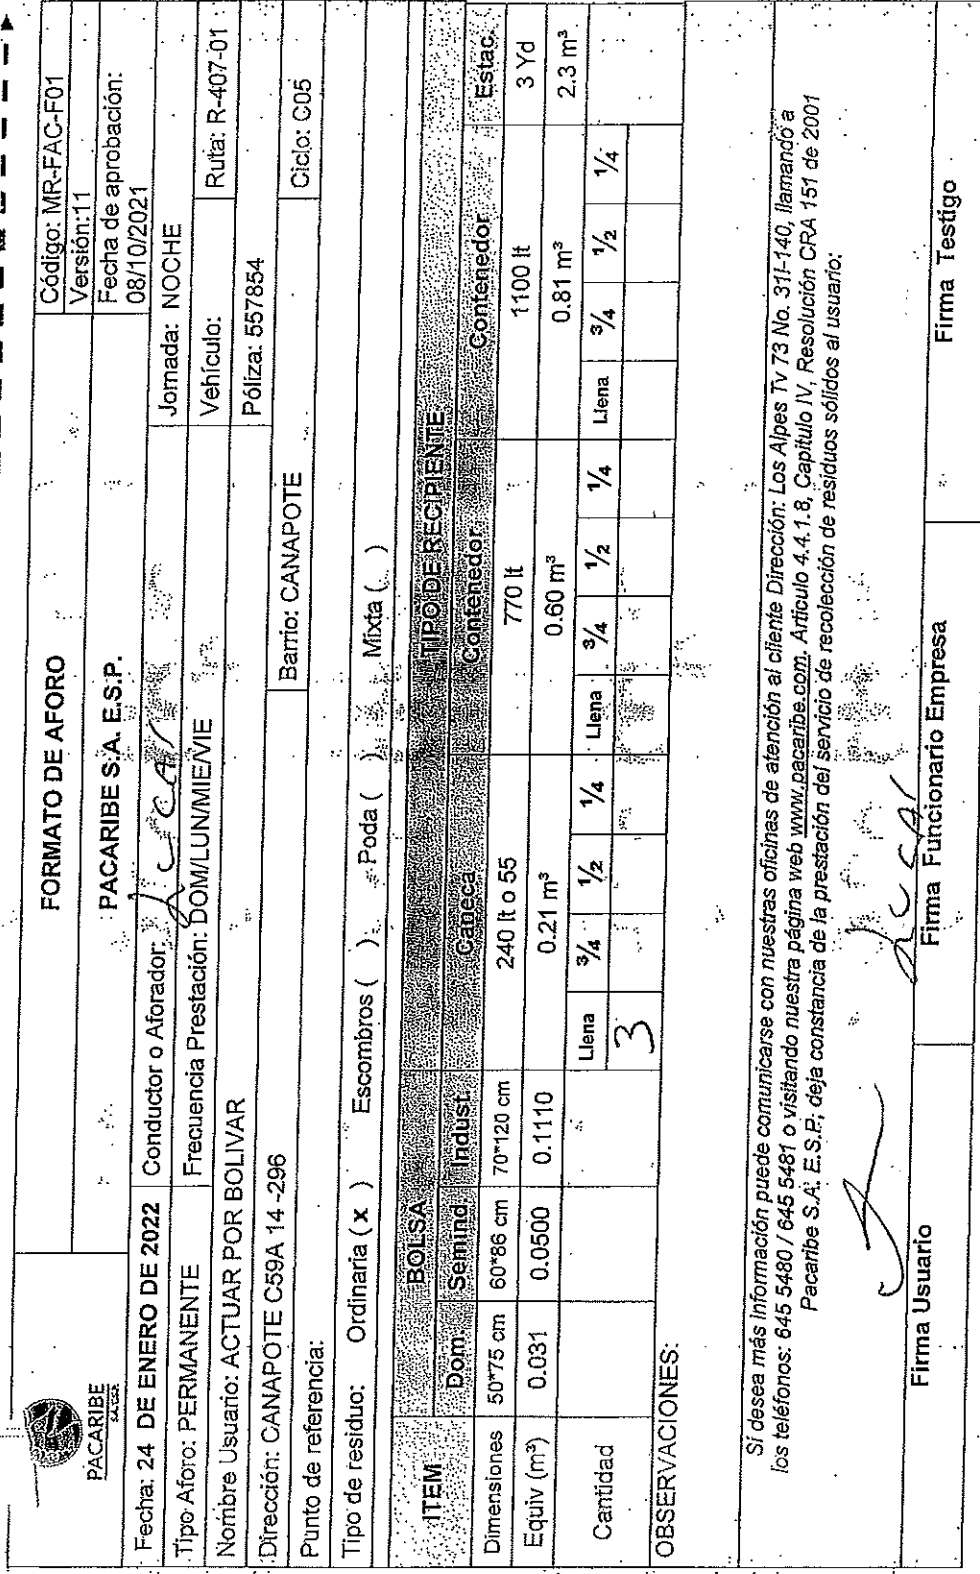 PACARIBE
S.A. E.S.P.
FORMATO DE AFORO
PACARIBE S.A. E.S.P.
Código: MR-FAC-F01
Versión:11
Fecha de aprobación:
08/10/2021
Fecha: 24 DE ENERO DE 2022 Conductor o Aforador: Jornada: NOCHE
Tipo Aforo: PERMANENTE Frecuencia Prestación: DOM/LUN/MIE/VIE Vehículo: Ruta: R-407-01
Nombre Usuario: ACTUAR POR BOLIVAR Póliza: 557854
Dirección: CANAPOTE C59A 14 -296 Barrio: CANAPOTE Ciclo: C05
Punto de referencia:
Tipo de residuo: Ordinaria ( x ) Escombros ( ) Poda ( ) Mixta ( )
ITEM BOLSA TIPO DE RECIPIENTE
Dom. Semind. Indust. Caneca Contenedor Contenedor Estac.
Dimensiones 50*75 cm 60*86 cm 70*120 cm 240 lt o 55 770 lt 1100 lt 3 Yd
Equiv (m³) 0.031 0.0500 0.1110 0.21 m³ 0.60 m³ 0.81 m³ 2.3 m³
Cantidad Llena ¾ ½ ¼ Llena ¾ ½ ¼ Llena ¾ ½ ¼
3
OBSERVACIONES:
Si desea más información puede comunicarse con nuestras oficinas de atención al cliente Dirección: Los Alpes Tv 73 No. 31I-140, llamando a
los teléfonos: 645 5480 / 645 5481 o visitando nuestra página web www.pacaribe.com. Articulo 4.4.1.8, Capitulo IV, Resolución CRA 151 de 2001
Pacaribe S.A. E.S.P.; deja constancia de la prestación del servicio de recolección de residuos sólidos al usuario:
Firma Usuario Firma Funcionario Empresa Firma Testigo